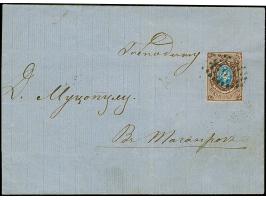 Господину
Д. Муцопулу.
Въ Таганрогъ